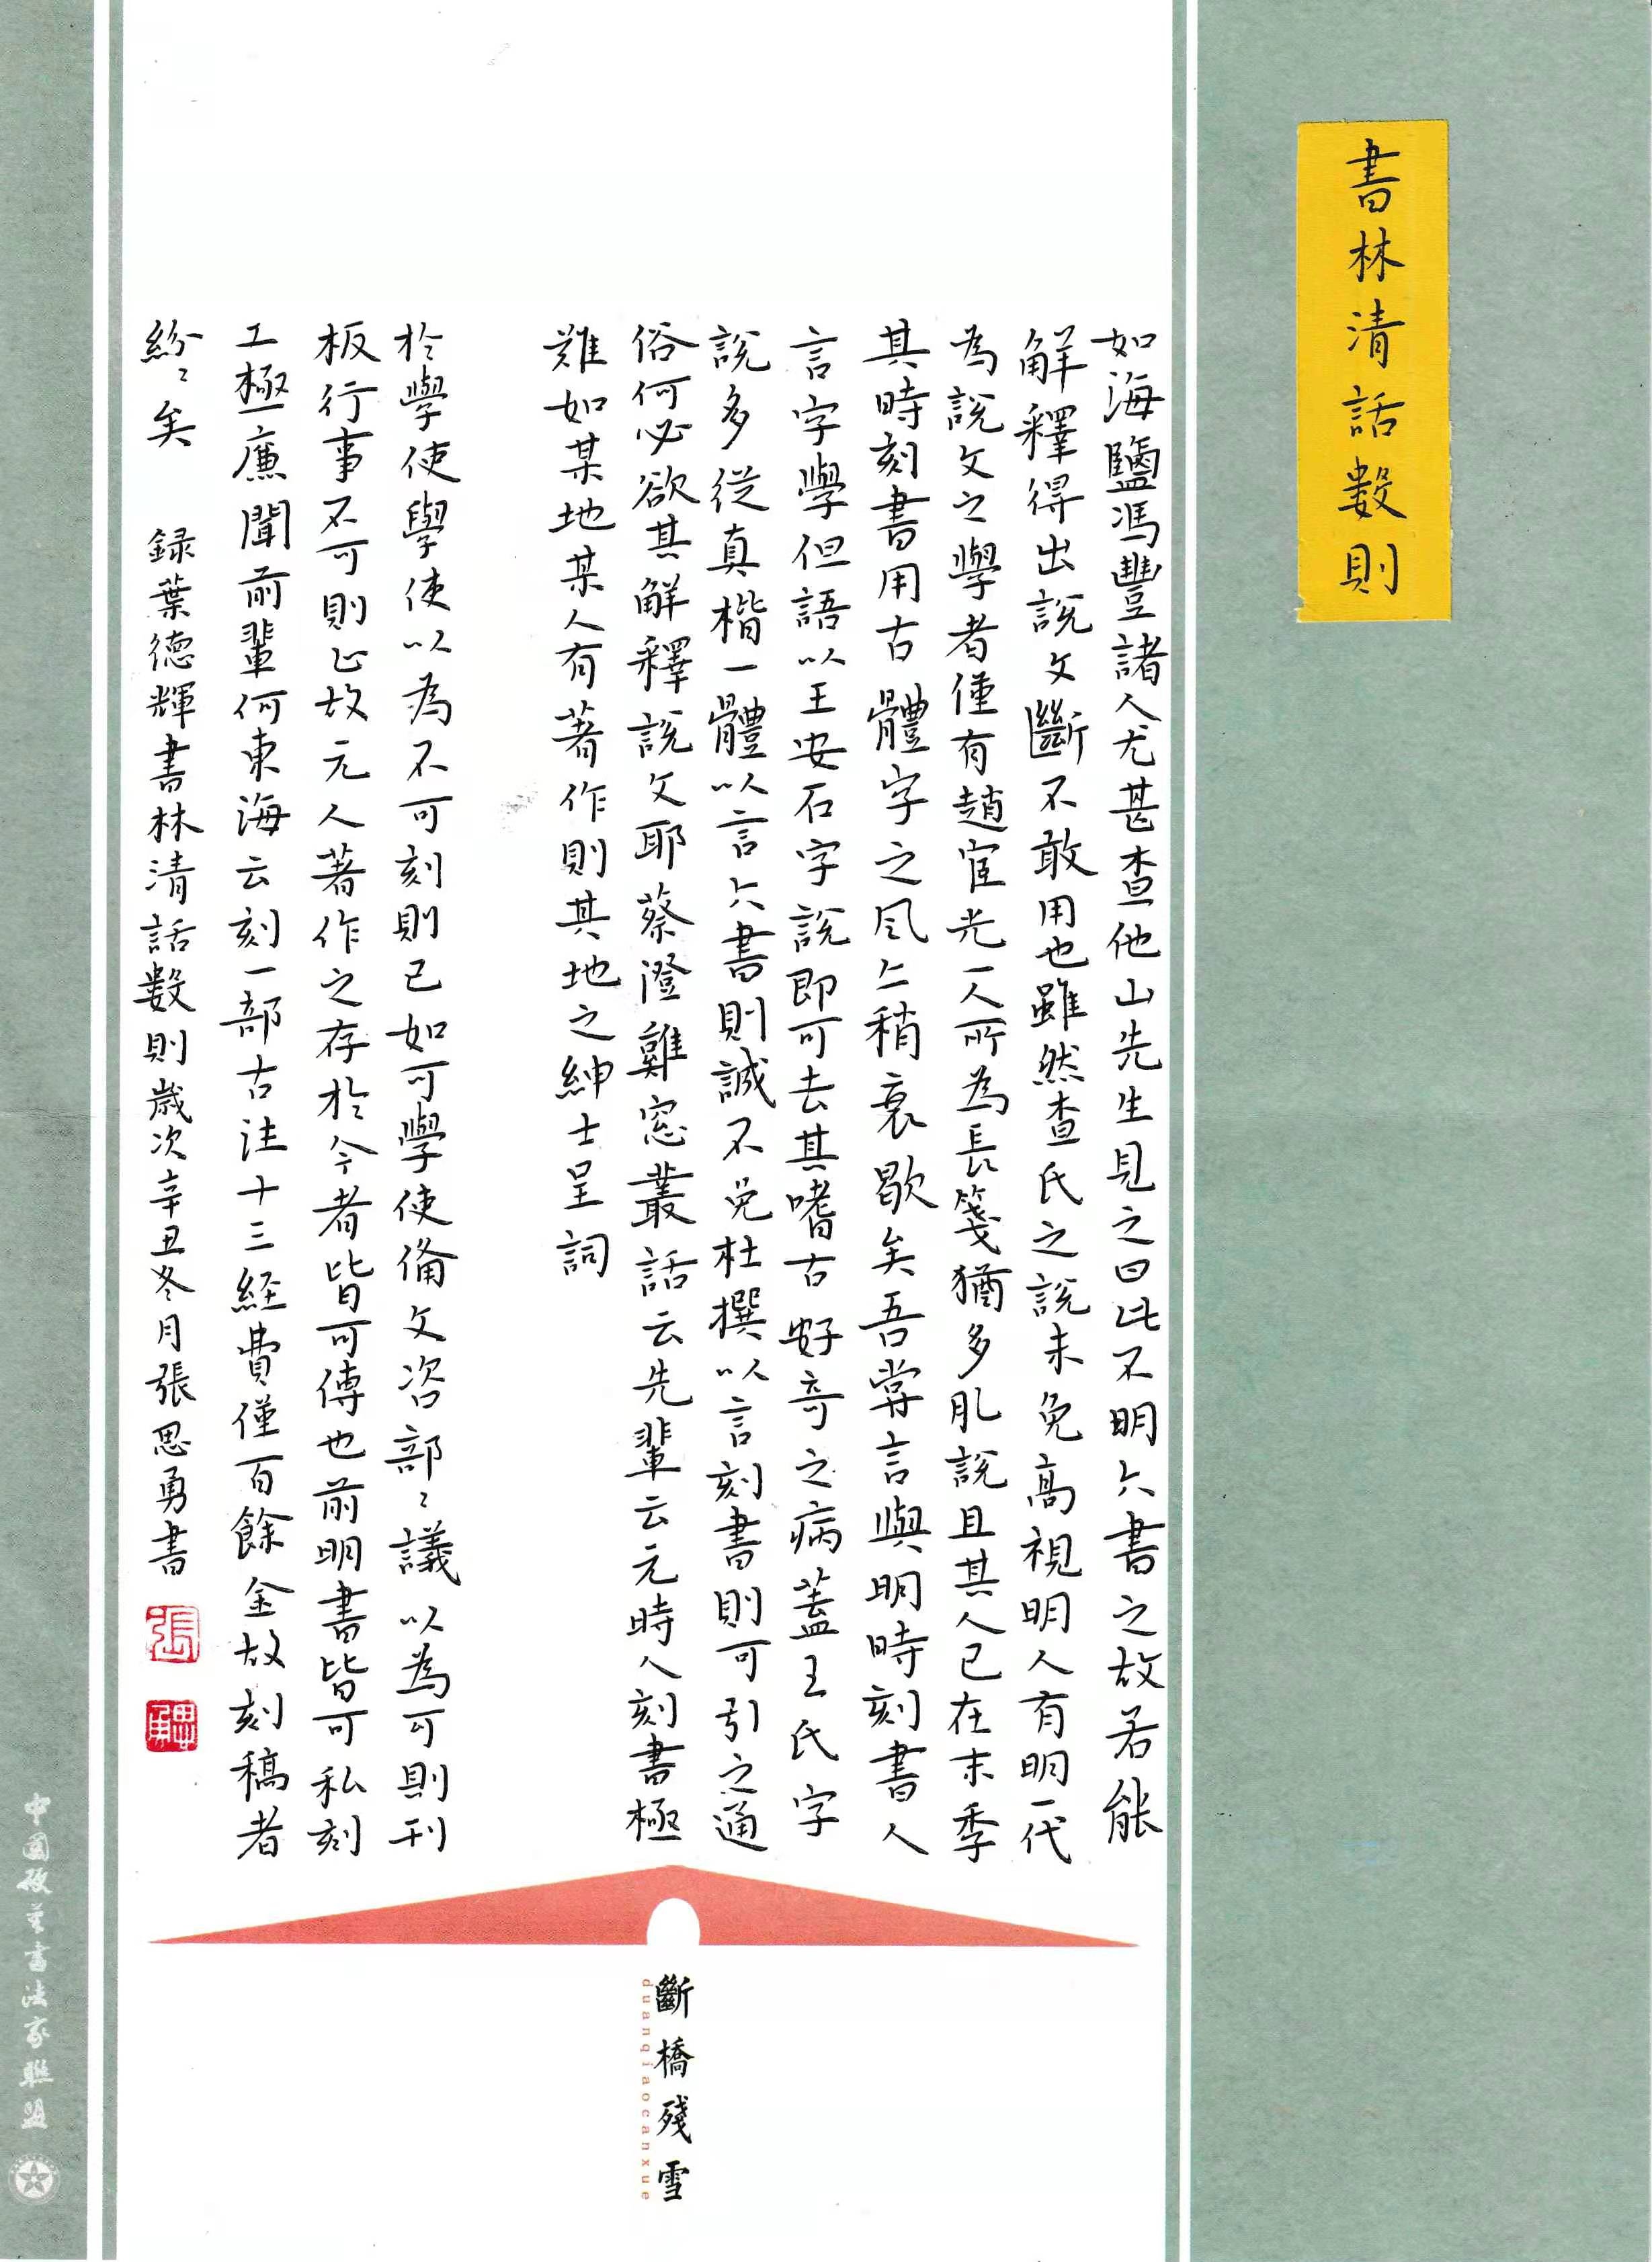 書林清話數則
如海鹽馮豐諸人尤甚查他山先生見之曰此不明六書之故若能
解釋得出說文斷不敢用也雖然查氏之說未免高視明人有明一代
為說文之學者僅有趙宧光一人所為長箋猶多肊說且其人已在末季
其時刻書用古體字之風亦稍衰歇矣吾嘗言與明時刻書人
言字學但語以王安石字說即可去其嗜古好奇之病蓋王氏字
說多從真楷一體以言六書則誠不免杜撰以言刻書則可引之通
俗何必欲其解釋說文耶蔡澄雞窓叢話云先輩云元時人刻書極
難如某地某人有著作則其地之紳士呈詞
於學使學使以為不可刻則已如可學使俻文咨部〻議以為可則刊
板行事不可則止故元人著作之存於今者皆可傳也前明書皆可私刻
工極廉聞前輩何東海云刻一部古注十三経費僅百餘金故刻稿者
紛〻矣 録葉德輝書林清話數則歲次辛丑冬月張思勇書
張
思勇
斷橋殘雪
duanqiaocanxue
中國硬筆書法家聯盟